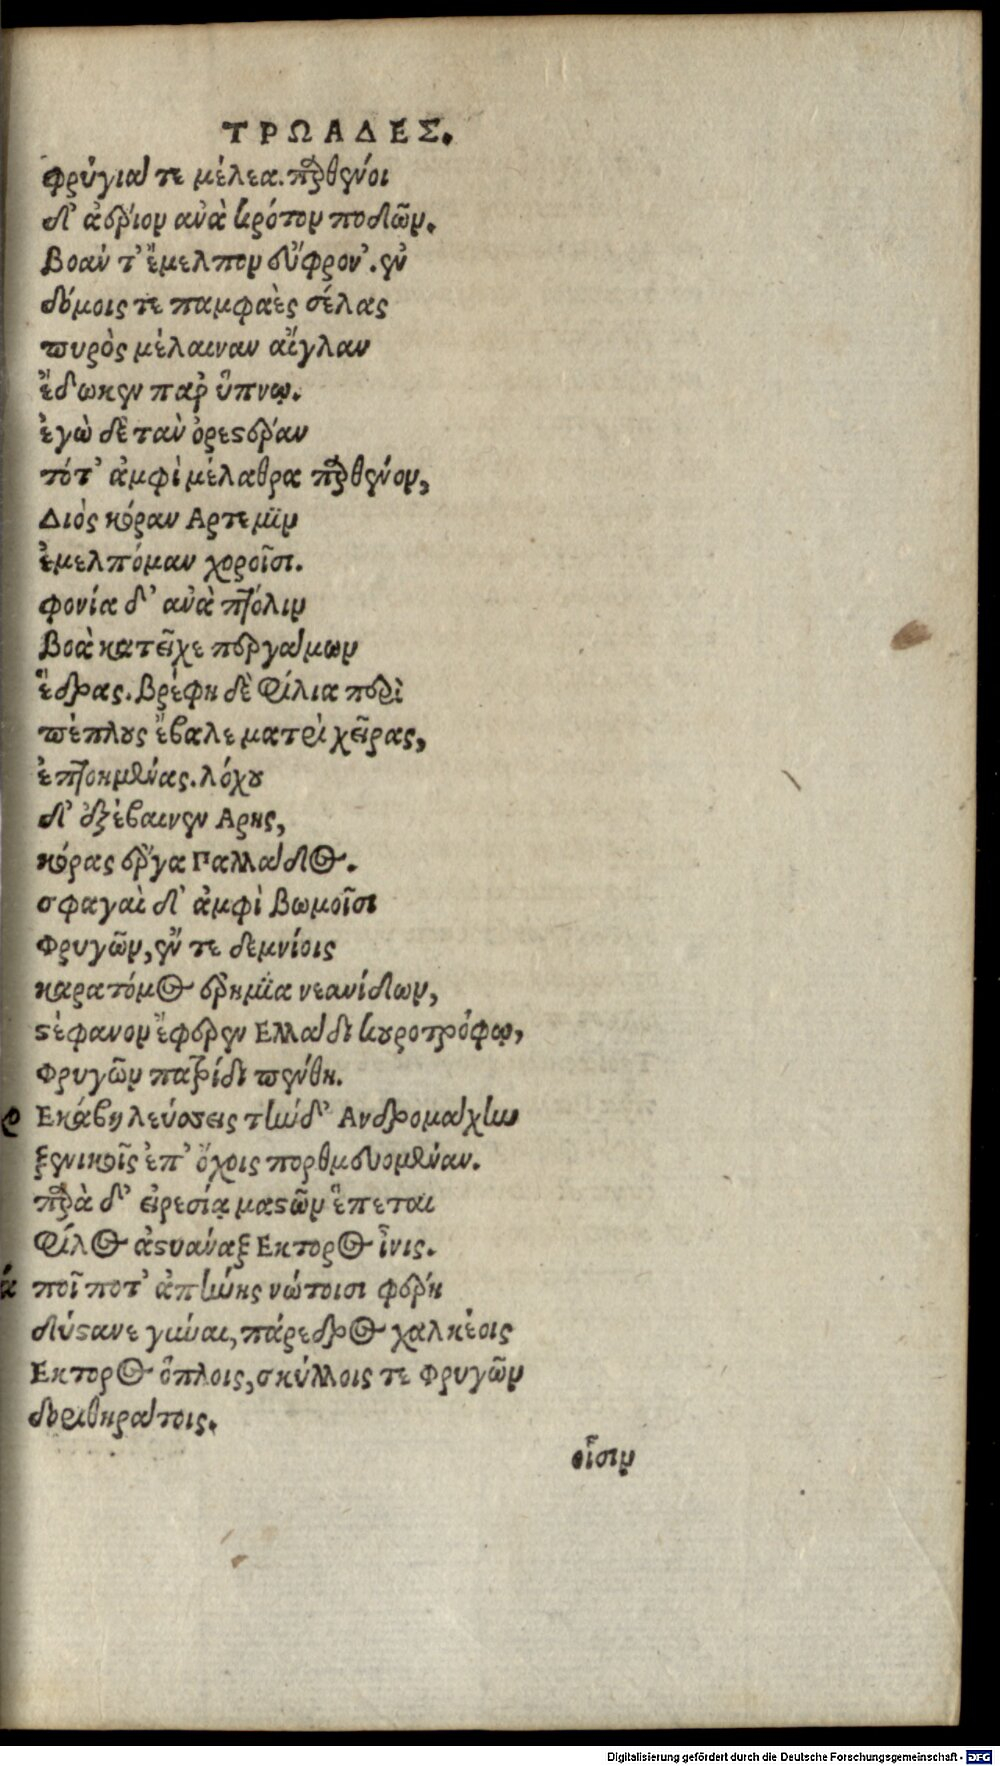 ΤΡΩΑΔΕΣ.
φρύγια τε μέλεα. παρθένοι
δ' ἀέριον ανὰ κρότον ποδῶν.
Βοάν τ' ἔμελπον εὔφρον'. ἐν
δόμοις τε παμφαὲς σέλας
πυρὸς μέλαιναν αἴγλαν
ἔδωκεν παρ ὕπνῳ.
ἐγὼ δὲ τὰν ὀρεστέραν
τότ' ἀμφὶ μέλαθρα παρθένον,
Διὸς κόραν Αρτεμϊν
ἐμελπόμαν χοροῖσι.
φονία δ' ανὰ πτόλιν
Βοὰ κατεῖχε περγάμων
ἕδρας. Βρέφη δὲ φίλια περὶ
πέπλους ἔβαλε ματρὶ χεῖρας,
ἐπτοημένας. λόχου
δ' ἐξέβαινεν Αρης,
κόρας ἔργα Παλλάδος.
σφαγαὶ δ' ἀμφὶ Βωμοῖσι
Φρυγῶν, ἔν τε δεμνίοις
καρατόμος ἐρημϊα νεανίδων,
στέφανον ἔφερεν Ελλάδι κουροτρόφῳ,
Φρυγῶν πατρίδι πένθη.
Εκάβη λεύσσεις τήνδ' Ανδρομάχην
ξενικοῖς ἐπ' ὄχοις πορθμευομέναν.
παρὰ δ' εἰρεσίᾳ μαστῶν ἕπεται
φίλος ἀστυάναξ Εκτορος ἶνις.
ποῖ ποτ' ἀπήνης νώτοισι φέρη
δύστανε γύναι, πάρεδρος χαλκέοις
Εκτορος ὅπλοις, σκύλλοις τε Φρυγῶν
δοριθηράτοις.
οἷσιν
Digitalisierung gefördert durch die Deutsche Forschungsgemeinschaft - DFG